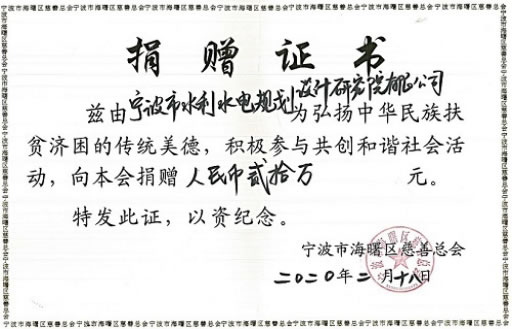 宁波市海曙区慈善总会宁波市海曙区慈善总会宁波市海曙区慈善总会宁波市海曙区慈善总会宁波市海曙区慈善总会
捐赠证书
兹由宁波市水利水电规划设计研究院有限公司为弘扬中华民族扶
贫济困的传统美德，积极参与共创和谐社会活
动，向本会捐赠人民币贰拾万元。
特发此证，以资纪念。
宁波市海曙区慈善总会
二〇二〇年二月十八日